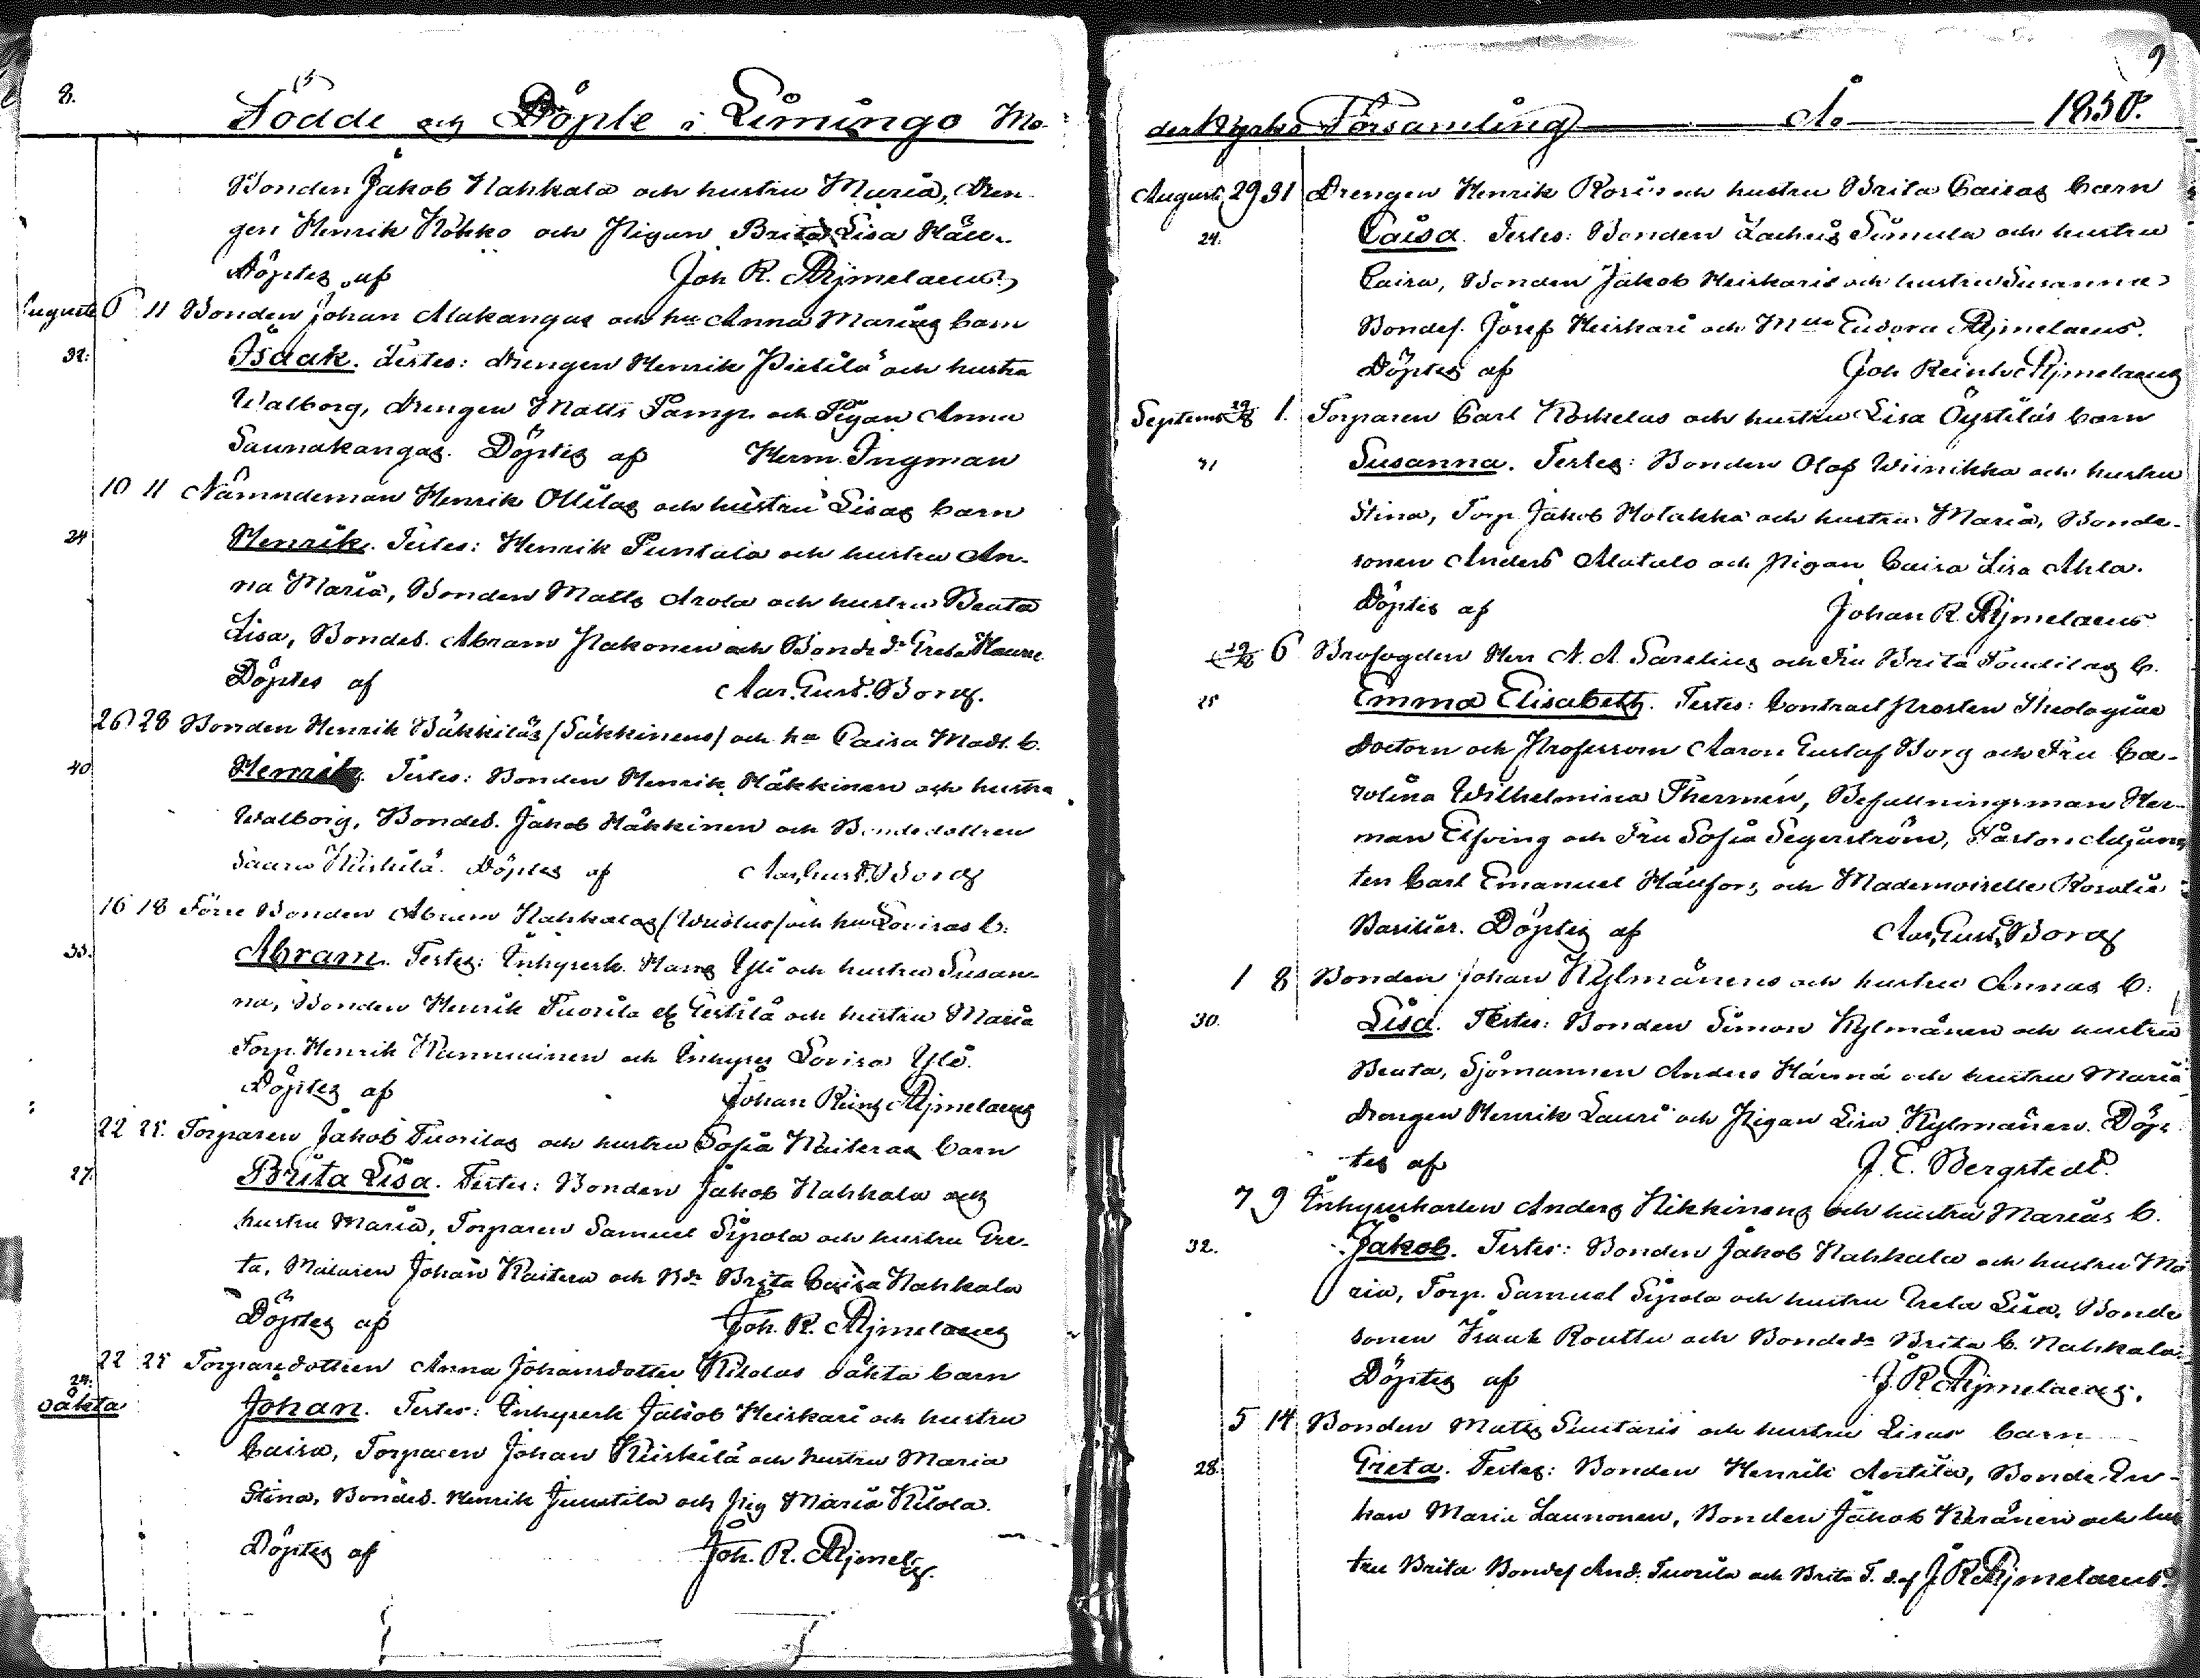 8.
Födde och Döpte i Limingo Mo-
Bonden Jakob Nahkala och hustru Maria, Dren-
gen Henrik Kokko och Pigan Brita Lisa
Döptes af Joh R. Ajmelaeus.
Augusti 6 11 Bonden Johan Alakangas och hu Anna Marias barn
32. Isaak. Testes: drengen Henrik Pietilä och hustru
Walborg, drengen Matts Pamp och Pigan Anna
Saunakangas. Döptes af Herm. Ingman
10 11 Nämndeman Henrik Ollilas och hustru Lisas barn
24 Henrik. Testes: Henrik Puntala och hustru An-
na Maria, Bonden Matts Arola och hustru Beata
Lisa, Bondes. Abram Hakonen och Bonded:r Greta
Döptes af Aar. Gust. Borg.
26 28 Bonden Henrik Bäkkiläs /Säkkinens/ och hu Caisa Madl. b.
40 Henrik. Testes: Bonden Henrik Häkkinen och hustru
Walborg, Bondes. Jakob Häkkinen och Bondedottren
Heikilä. Döptes af Aar. Gust. Borg
16 18 Förre Bonden Abram Nahkalas och hu Lovisas b.
33. Abram. Testes: Inhysesk. Hans Yli och hustru Susan-
na, Bonden Henrik Tuorila och hustru Maria
Torp. Henrik och Inhyses Lovisa Yli.
Döptes af Johan Reinh Ajmelaeus
22 25. Torparen Jakob Tuorilas och hustru Sofia Kaiteras barn
27. Brita Lisa. Testes: Bonden Jakob Nahkala och
hustru Maria, Torparen Samuel Sipola och hustru Gre-
ta, Målaren Johan Kaitera och Bdr Brita Caisa Nahkala
Döptes af Joh. R. Ajmelaeus
22 25 Torparedottren Anna Johansdotter Kilolas oäkta barn
24.
oäkta Johan. Testes: Inhysesk Jakob Heiskari och hustru
Caisa, Torparen Johan Kiiskilä och hustru Maria
Stina, Bondes. Henrik Juustila och Pig Maria Kilola.
Döptes af Joh. R. Ajmels.
9
derkyrko Församling Åo 1850.
Augusti 29 31 Drengen Henrik Rosi's och hustru Brita Caisas barn
24. Caisa. Testes: Bonden Zacheus Simula och hustru
Caisa, Bonden Jakob Heiskaris och hustru Susanna
Bondes. Josef Heiskari och Mlle Eudora Ajmelaeus.
Döptes af Joh Reinh Ajmelaeus
Septemb 29/8 1. Torparen Carl Koskelas och hustru Lisa Öystiläs barn
31 Susanna. Testes: Bonden Olof Wiinikka och hustru
Stina, Torp Jakob Holakka och hustru Maria, Bonde-
sonen Anders Alatalo och Pigan Caisa Lisa Ahla.
Döptes af Johan R. Ajmelaeus
29/8 6 Brofogden Herr N. A. Sarelius och Fru Brita b.
25 Emma Elisabeth. Testes: Contract Prosten Theologiae
Doctorn och Professorn Aaron Gustaf Borg och Fru Ca-
rolina Wilhelmina Thermén, Befallningsman Her-
man Elfving och Fru Sofia Segerström, Pastors Adjunk-
ten Carl Emanuel och Mademoiselle Rosalie
Basilier. Döptes af Aar. Gust. Borg
1 8 Bonden Johan Kylmänens och hustru Annas b.
30. Lisa. Testes: Bonden Simon Kylmänen och hustru
Beata, Sjömannen Anders Härmä och hustru Maria
drengen Henrik Lauri och Pigan Lisa Kylmänen. Döp-
tes af J. E. Bergstedt.
7 9 Inhyseskarlen Anders Nikkinens och hustru Marias b.
32. Jakob. Testes: Bonden Jakob Nahkala och hustru Ma-
ria, Torp. Samuel Sipola och hustru Greta Lisa, Bonde
sonen Isaak Routtu och Bondedr Brita C. Nahkala.
Döptes af J. R. Ajmelaeus.
5 14 Bonden Matts Suutaris och hustru Lisas barn
28. Greta. Testes: Bonden Henrik Anttila, Bonde En-
kan Maria Launonen, Bonden Jakob Keränen och hus
tru Brita Bondes And. Tuorila och Brita T. d. af J R Ajmelaeus.